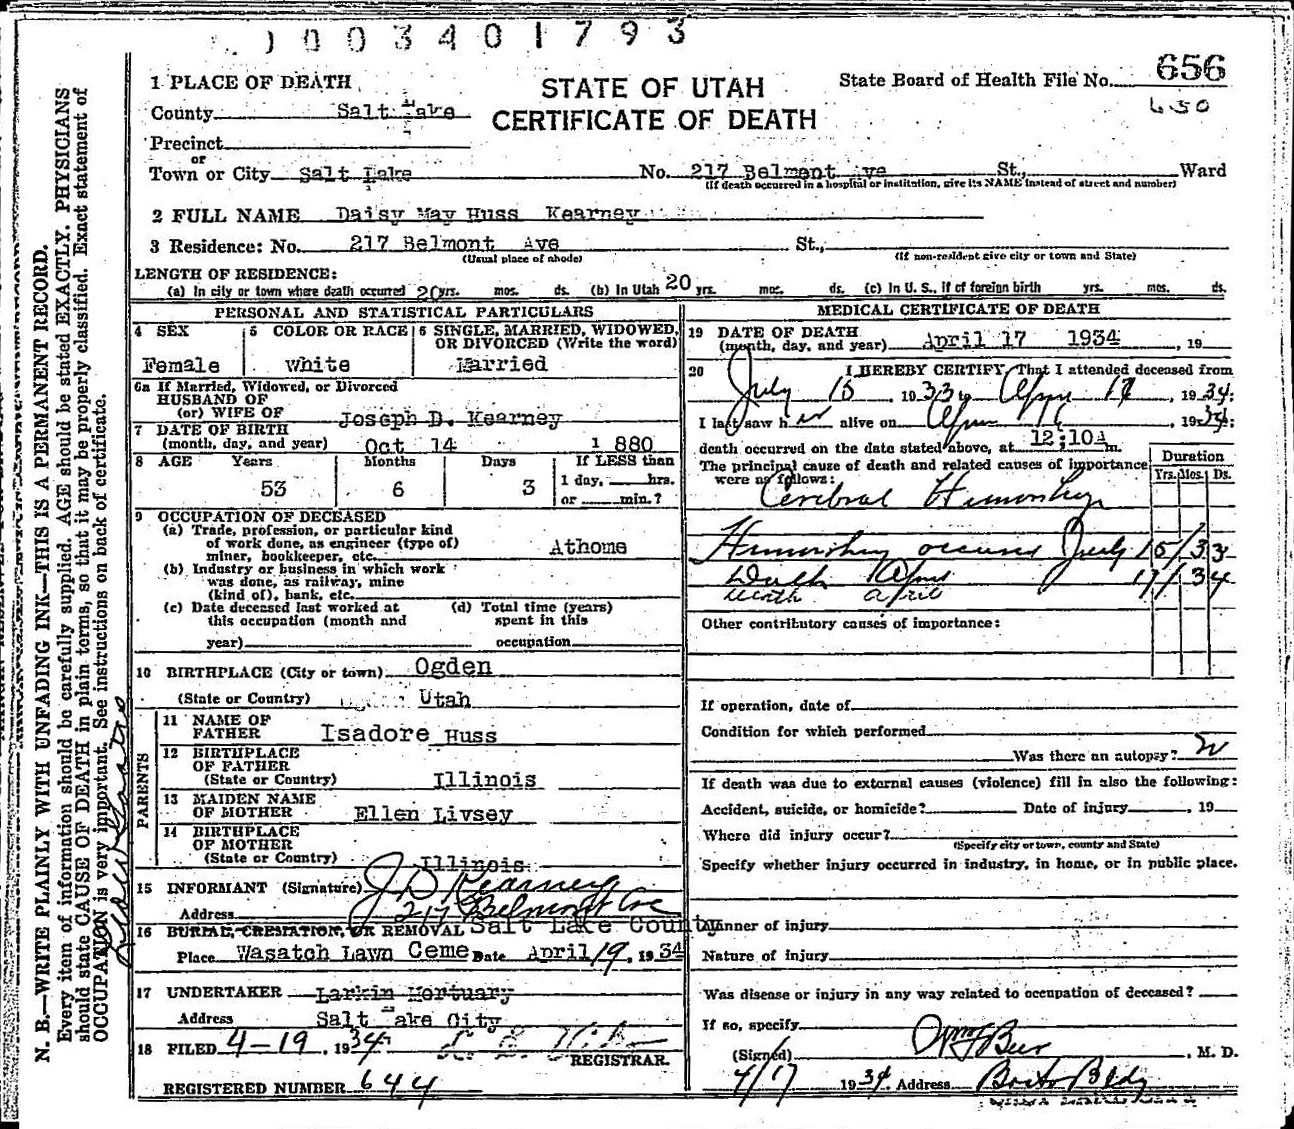 1003401793
1 PLACE OF DEATH
STATE OF UTAH
CERTIFICATE OF DEATH
State Board of Health File No. 656
650
County Salt Lake
Precinct
or
Town or City Salt Lake No. 217 Belmont Ave St., Ward
(If death occurred in a hospital or institution, give its NAME instead of street and number)
2 FULL NAME Daisy May Huss Kearney
3 Residence: No. 217 Belmont Ave St.,
(Usual place of abode) (If non-resident give city or town and State)
LENGTH OF RESIDENCE:
(a) In city or town where death occurred 20 yrs. mos. ds. (b) In Utah 20 yrs. mos. ds. (c) In U. S., if of foreign birth yrs. mos. ds.
PERSONAL AND STATISTICAL PARTICULARS
4 SEX
Female
5 COLOR OR RACE
White
6 SINGLE, MARRIED, WIDOWED,
OR DIVORCED (Write the word)
Married
6a If Married, Widowed, or Divorced
HUSBAND OF
(or) WIFE OF Joseph D. Kearney
7 DATE OF BIRTH
(month, day, and year) Oct 14 1 880
8 AGE Years Months Days If LESS than
53 6 3 1 day, hrs.
or min.?
9 OCCUPATION OF DECEASED
(a) Trade, profession, or particular kind
of work done, as engineer (type of)
miner, bookkeeper, etc. Athome
(b) Industry or business in which work
was done, as railway, mine
(kind of), bank, etc.
(c) Date deceased last worked at
this occupation (month and
year)
(d) Total time (years)
spent in this
occupation
10 BIRTHPLACE (City or town) Ogden
(State or Country) Utah
PARENTS
11 NAME OF
FATHER Isadore Huss
12 BIRTHPLACE
OF FATHER
(State or Country) Illinois
13 MAIDEN NAME
OF MOTHER Ellen Livsey
14 BIRTHPLACE
OF MOTHER
(State or Country) Illinois
15 INFORMANT (Signature) J D Kearney
Address 217 Belmont Ave
16 BURIAL, CREMATION, OR REMOVAL Salt Lake County
Place Wasatch Lawn Ceme Date April 19, 1934
17 UNDERTAKER Larkin Mortuary
Address Salt Lake City
18 FILED 4-19, 1934
REGISTRAR.
REGISTERED NUMBER 644
MEDICAL CERTIFICATE OF DEATH
19 DATE OF DEATH
(month, day, and year) April 17 1934, 19
20 I HEREBY CERTIFY, That I attended deceased from
July 15, 1933 to Apr 17, 1934;
I last saw her alive on Apr 16, 1934;
death occurred on the date stated above, at 12:10A m.
The principal cause of death and related causes of importance
were as follows:
Duration
Yrs. Mos. Ds.
Cerebral Hemorrhage
Hemorrhage occured July 15/33
Death Apr 17/34
death april
Other contributory causes of importance:
If operation, date of
Condition for which performed
Was there an autopsy?
If death was due to external causes (violence) fill in also the following:
Accident, suicide, or homicide? Date of injury, 19
Where did injury occur?
(Specify city or town, county and State)
Specify whether injury occurred in industry, in home, or in public place.
Manner of injury
Nature of injury
Was disease or injury in any way related to occupation of deceased?
If so, specify
(Signed), M. D.
4/17 1934 Address Boston Bldg
N. B.—WRITE PLAINLY WITH UNFADING INK—THIS IS A PERMANENT RECORD.
Every item of information should be carefully supplied. AGE should be stated EXACTLY. PHYSICIANS
should state CAUSE OF DEATH in plain terms, so that it may be properly classified. Exact statement of
OCCUPATION is very important. See instructions on back of certificate.